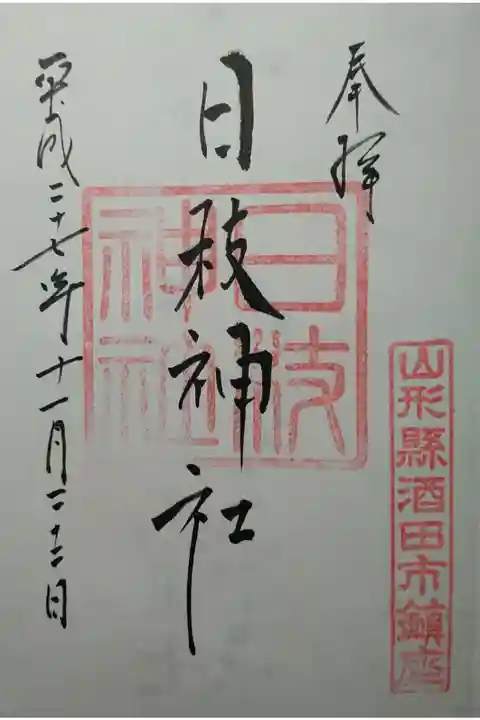 奉拝
山形縣酒田市鎮座
日枝神社
日枝神社
平成二十七年十一月二十二日